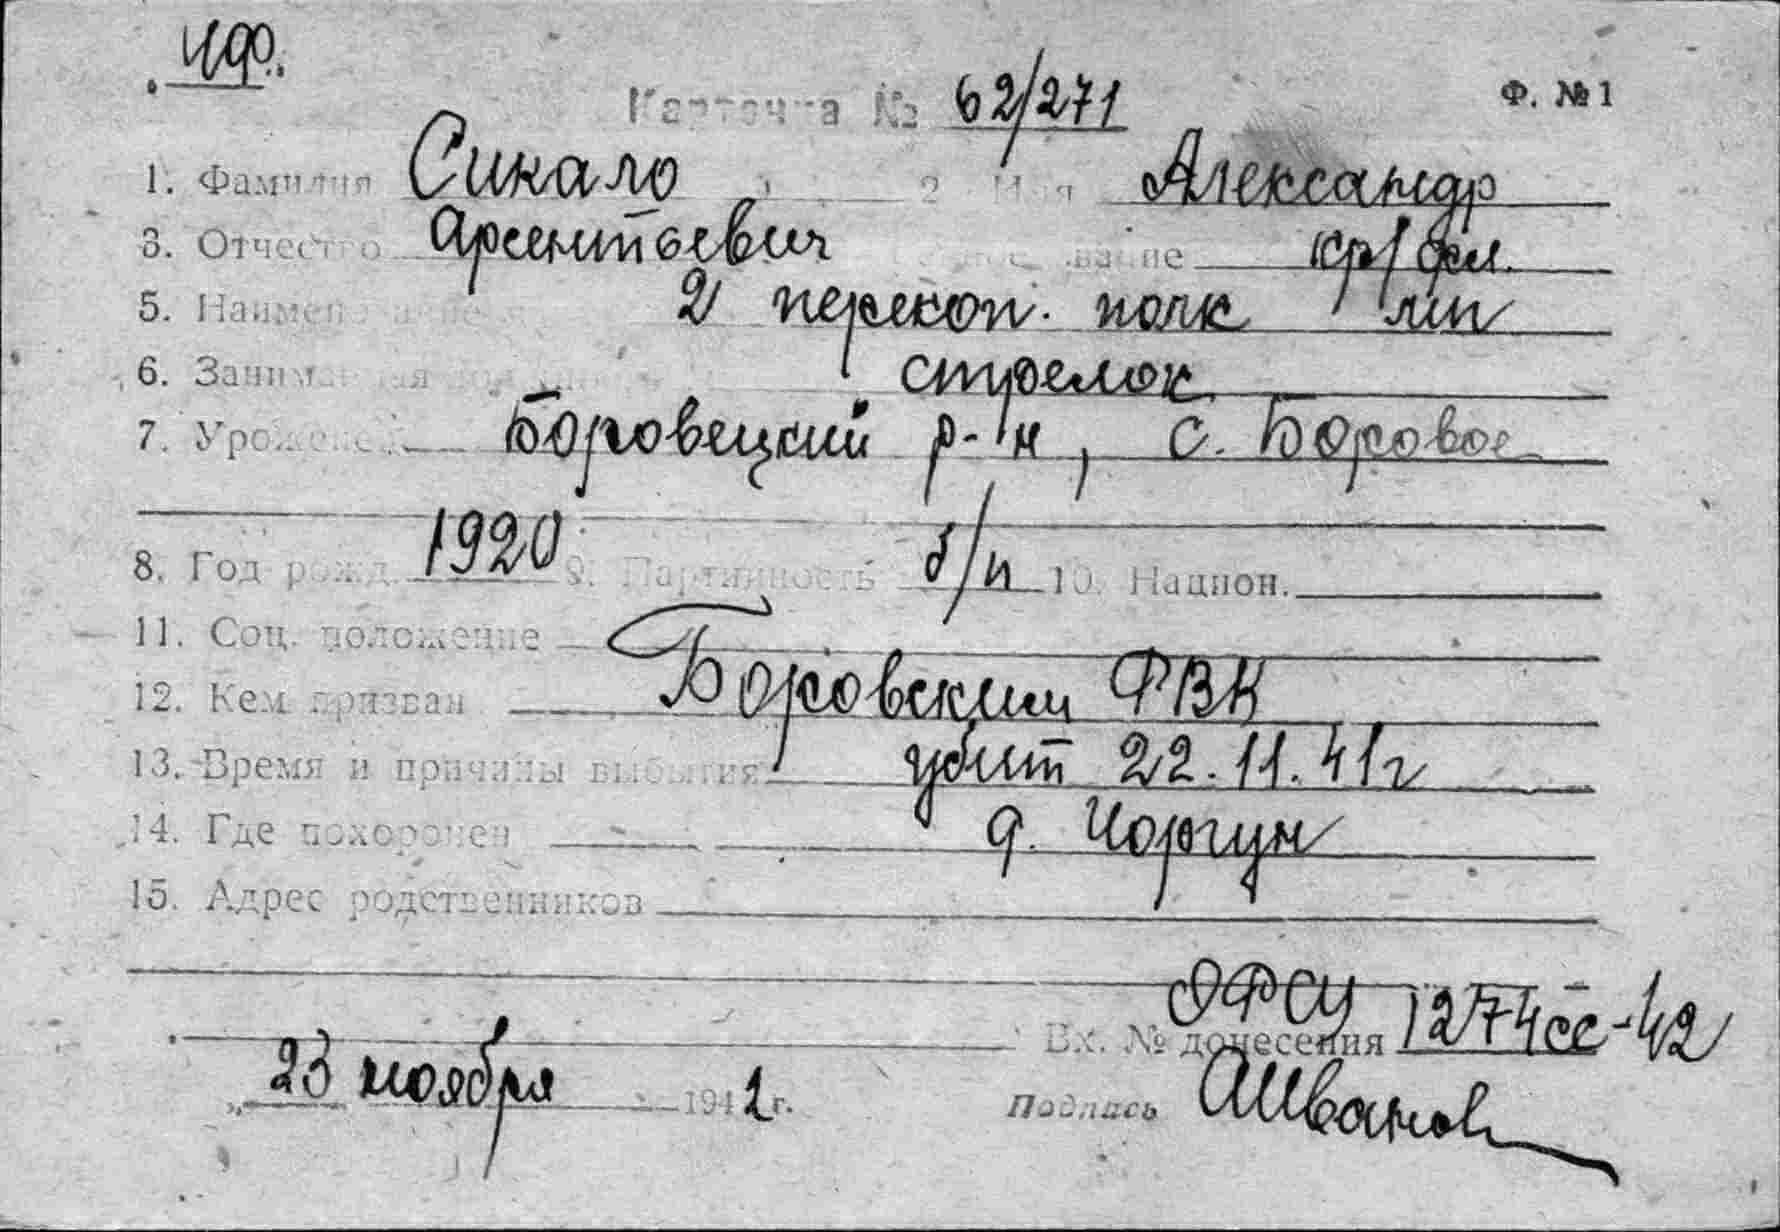 ЧФ.
Карточка № 62/271 Ф. № 1
1. Фамилия Сикало 2. Имя Александр
3. Отчество Арсентьевич звание кр/фл.
5. Наименование 2 перекоп. полк
6. Занимаемая должность стрелок
7. Уроженец Боровецкий р-н, с. Боровое
8. Год рожд. 1920 9. Партийность б/п 10. Национ.
11. Соц. положение
12. Кем призван Боровским РВК
13. Время и причины выбытия убит 22.11.41г
14. Где похоронен д. Чоргун
15. Адрес родственников
ОФСУ
Вх. № донесения 1274сс-42
„ 23 ноября 1942 г. Подпись АИванов